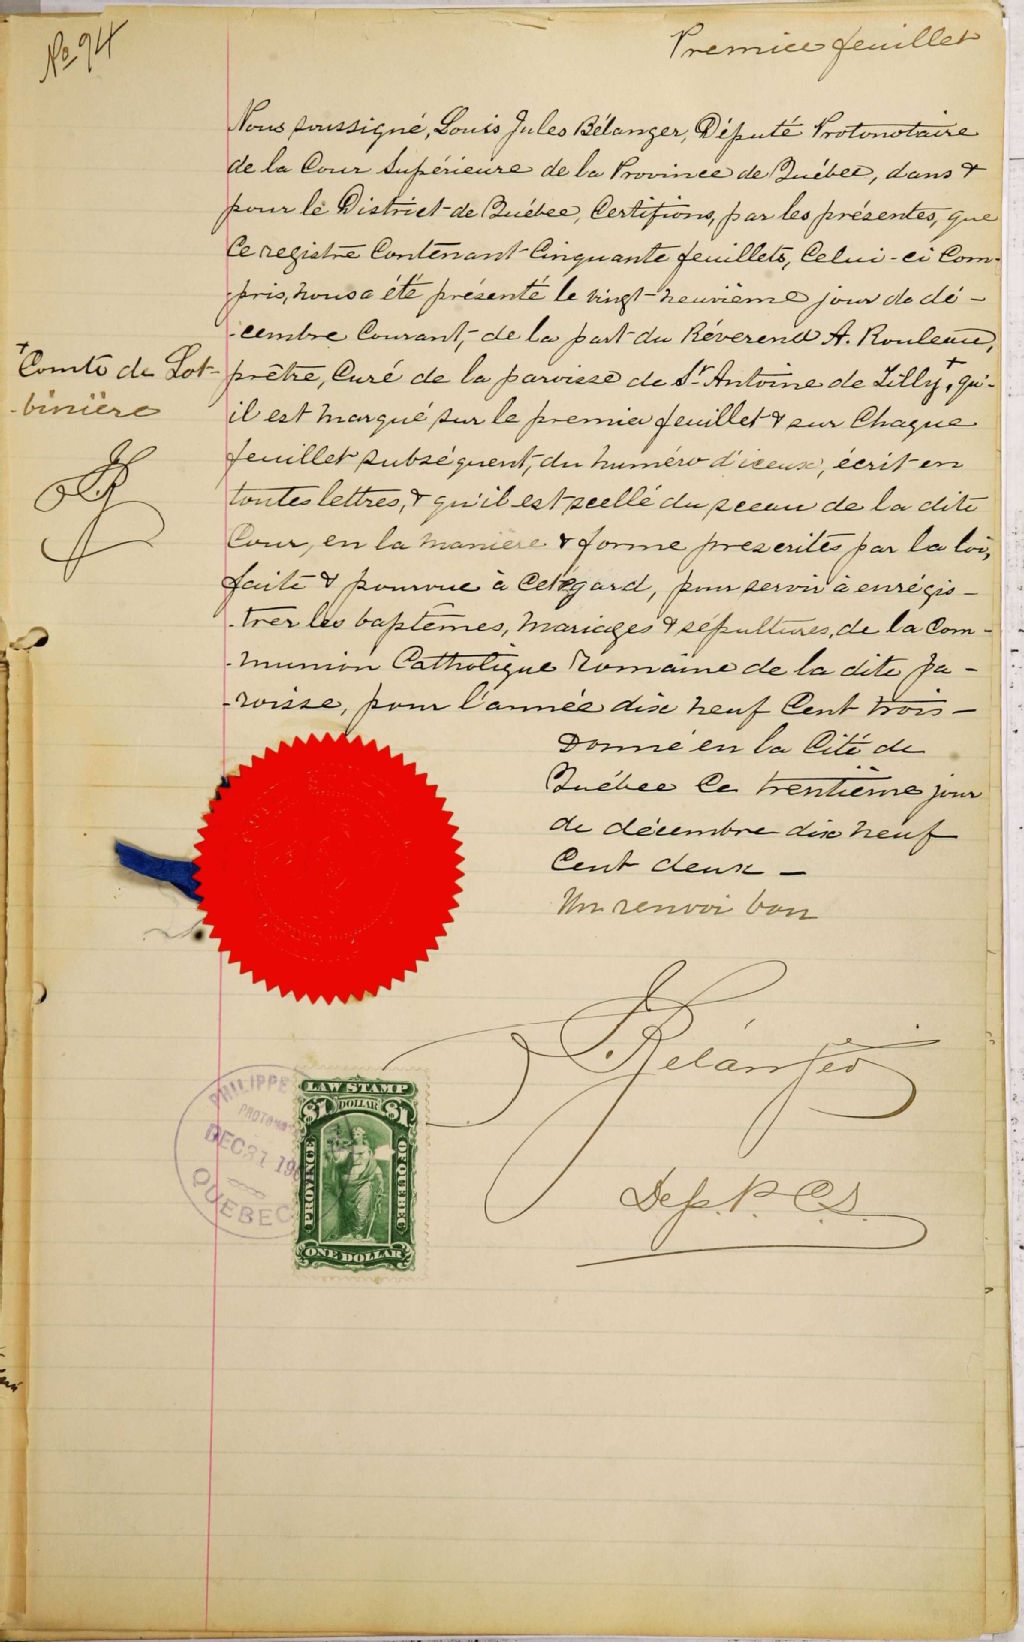 No 94
Premier feuillet
Nous soussigné, Louis Jules Bélanger, Député Protonotaire
de la Cour Supérieure de la Province de Québec, dans &
pour le District de Québec, Certifions, par les présentes, que
Ce registre Contenant Cinquante feuillets, Celui-ci Com-
-pris, nous a été présenté le vingt-neuvième jour de dé-
-cembre Courant, de la part du Révérend A. Rouleau,
+ Comté de Lot-
-binière
prêtre, Curé de la paroisse de St Antoine de Tilly +, qu'-
il est marqué sur le premier feuillet & sur Chaque
feuillet subséquent, du numéro d'iceux, écrit en
toutes lettres, & qu'il est scellé du sceau de la dite
Cour, en la manière & forme prescrites par la loi,
faite & pourvue à Cet égard, pour servir à enrégis-
-trer les baptêmes, mariages & sépultures, de la Com-
-munion Catholique Romaine de la dite pa-
-roisse, pour l'année dix neuf Cent trois -
Donné en la Cité de
Québec Ce trentième jour
de décembre dix neuf
Cent deux -
Un renvoi bon
Bélanger
Dep. P. C. S.
PHILIPPE
DEC 31 190
QUEBEC
LAW STAMP
$1 DOLLAR $1
PROVINCE OF QUEBEC
ONE DOLLAR